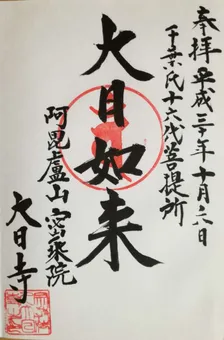 奉拝 平成三十年十月六日
千葉氏十六代菩提所
大日如来
阿毘盧山 密乗院
大日寺